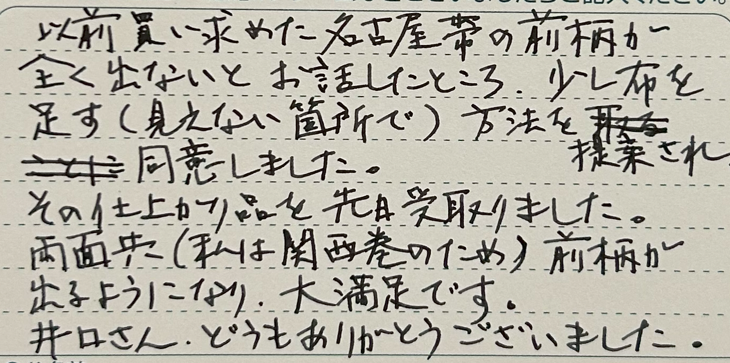 以前買い求めた名古屋帯の前柄が
全く出ないとお話したところ、少し布を
足す(見えない箇所で)方法を提案され
同意しました。
その仕上がり品を先日受取りました。
両面共(私は関西巻のため)前柄が
出るようになり、大満足です。
井口さん、どうもありがとうございました。